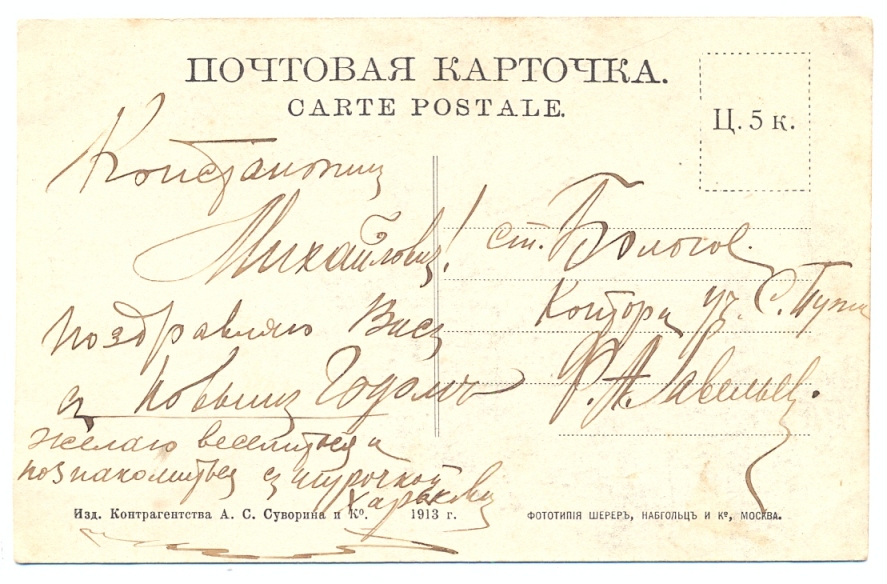 ПОЧТОВАЯ КАРТОЧКА.
CARTE POSTALE.
Ц. 5 к.
Константинъ
Михайловичъ!
поздравляю Васъ
съ Новымъ Годомъ
желаю веселиться и
познакомиться съ
Харьковъ
ст. Бологое.
Контора уч. С. Пути
Изд. Контрагентства А. С. Суворина и К°. 1913 г.
ФОТОТИПІЯ ШЕРЕРЪ, НАБГОЛЬЦЪ И К°, МОСКВА.